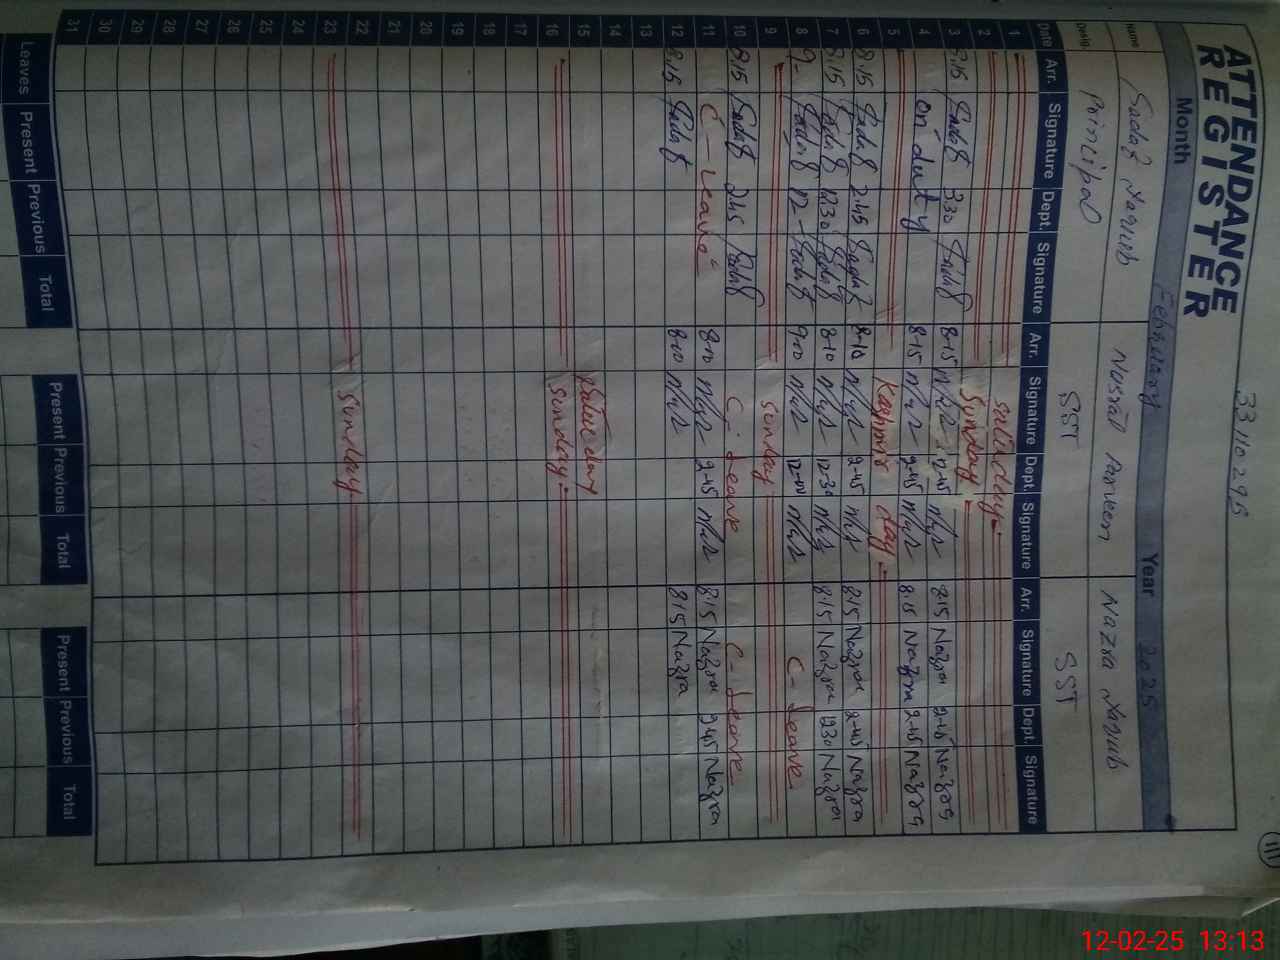 33110295
ATTENDANCE
REGISTER
Month February Year 2025
Name Sadaf Nusrat Parveen Nazra
Desig. Principal SST SST
Date Arr. Signature Dept. Signature Arr. Signature Dept. Signature Arr. Signature Dept. Signature
1 saturday
2 Sunday
3 8.15 Sadaf 3.30 Sadaf 8-15 2-45 8.15 Nazra 2-45 Nazra
4 on duty 8-15 2-45 8.15 Nazra 2-45 Nazra
5 Kashmir day
6 8.15 Sadaf 2.45 Sadaf 8-10 2-45 8.15 Nazra 2-45 Nazra
7 8.15 Sadaf 12.30 Sadaf 8-10 12-30 8.15 Nazra 12.30 Nazra
8 9- Sadaf 12- Sadaf 9-00 12-00 C-Leave
9 Sunday
10 8.15 Sadaf 2.45 Sadaf C-Leave C-Leave
11 C-Leave 8-00 2-45 8.15 Nazra 2.45 Nazra
12 8.15 Sadaf 8-00 8.15 Nazra
13
14
15 Saturday
16 Sunday
17
18
19
20
21
22
23 Sunday
24
25
26
27
28
29
30
31
Leaves Present Previous Total Present Previous Total Present Previous Total
12-02-25 13:13